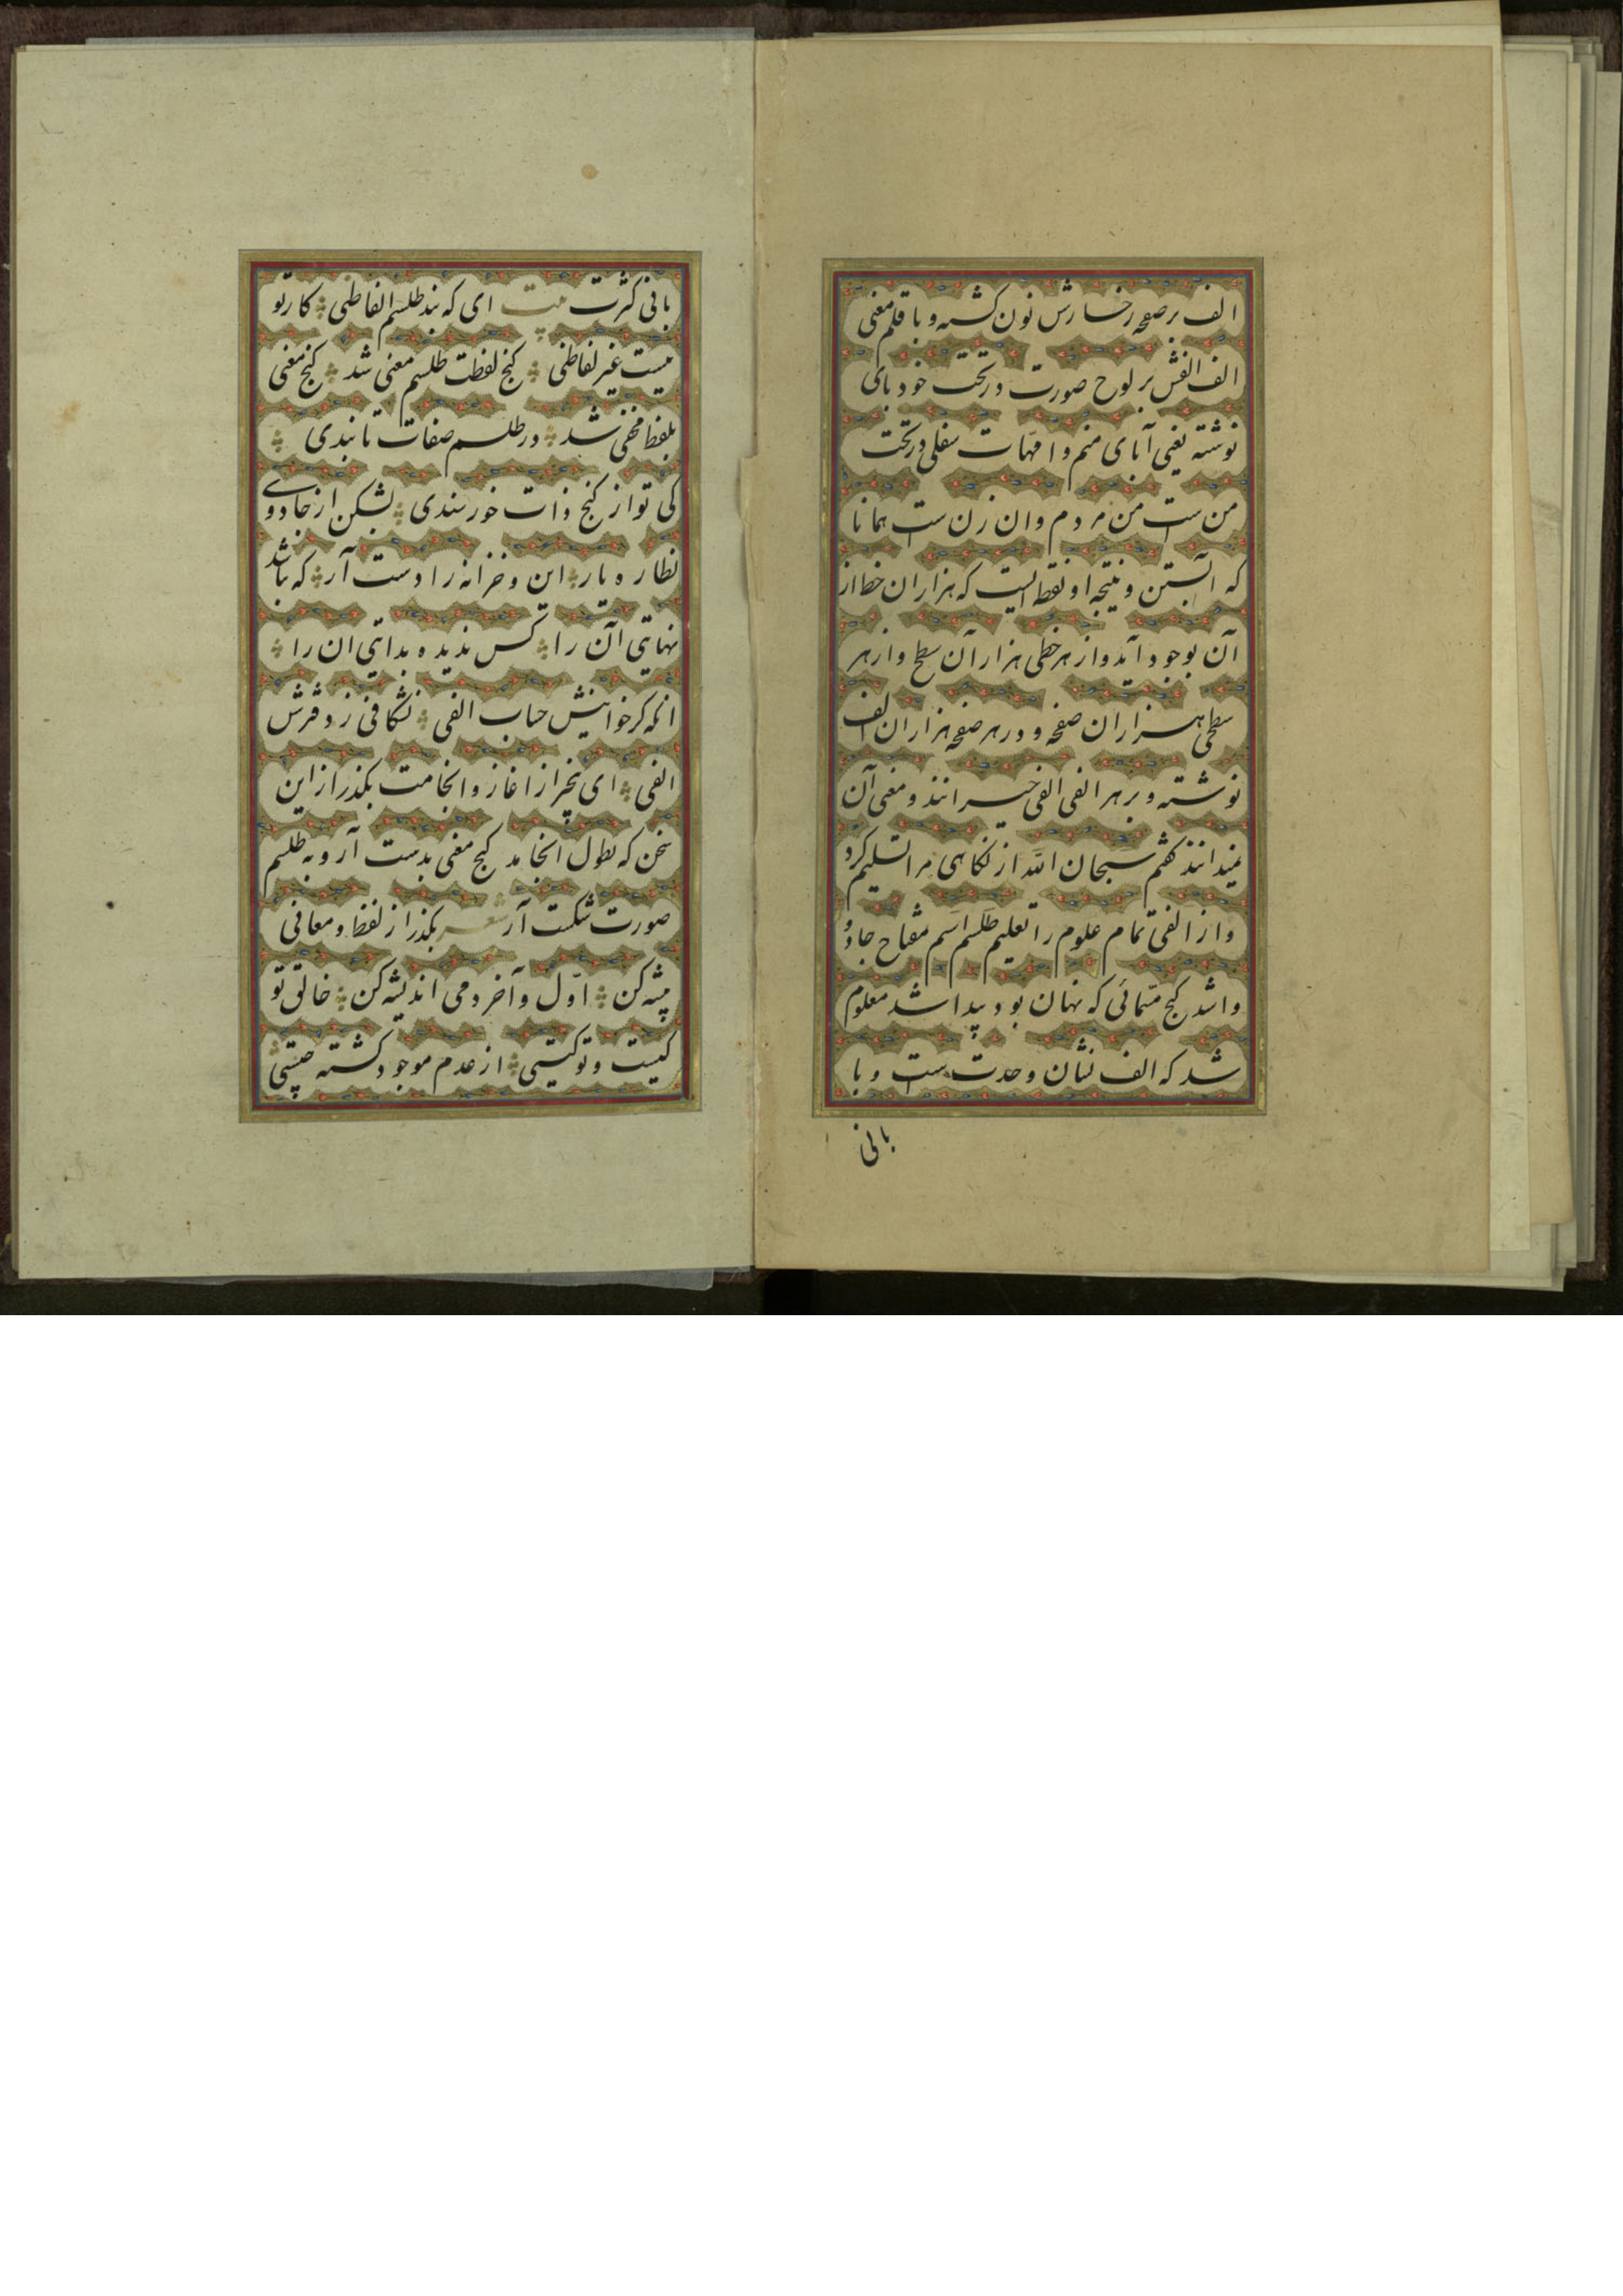 الف بر صفحه رخسارش نون کشته و با قلم معنی
الف الفش بر لوح صورت در تحت خود بای
نوشته یعنی آبای منم و امهات سفلی در تحت
من ست من مردم و ان زن ست همانا
که آبستن و نتیجه او نقطه ایست که هزاران خط از
آن بوجود آید و از هر خطی هزار آن سطح و از هر
سطحی هزاران صفحه و در هر صفحه هزاران الف
نوشته و بر هر الفی الفی خیرانند و معنی آن
نمیدانند گفتم سبحان الله از نگاهی مرا تسلیم کرد
و از الفی تمام علوم را تعلیم طلسم اسم مفتاح جادو
وا شد گنج مسمائی که نهان بود پیدا شد معلوم
شد که الف نشان وحدت ست و با
بانی
بانی کثرت بیت ای که بند طلسم الفاظی کار تو
نیست غیر لفاظی گنج لفظت طلسم معنی شد گنج معنی
بلفظ مخفی شد در طلسم صفات تا بندی
کی تو از گنج ذات خورسندی بشکن از جادوی
نظاره یار این و خزانه را دست آر که باشد
نهایتی آن را کس ندیده بدایتی ان را
انکه کر خوانیش حباب الفی نشکافی ز دفترش
الفی ای بیخبر از اغاز و انجامت بگذر از این
سخن که بطول انجامد گنج معنی بدست آر و به طلسم
صورت شکست آر شعر بگذر از لفظ و معانی
پیشه کن اوّل و آخر دمی اندیشه کن خالق تو
کیست و تو کیستی از عدم موجود کشته چیستی